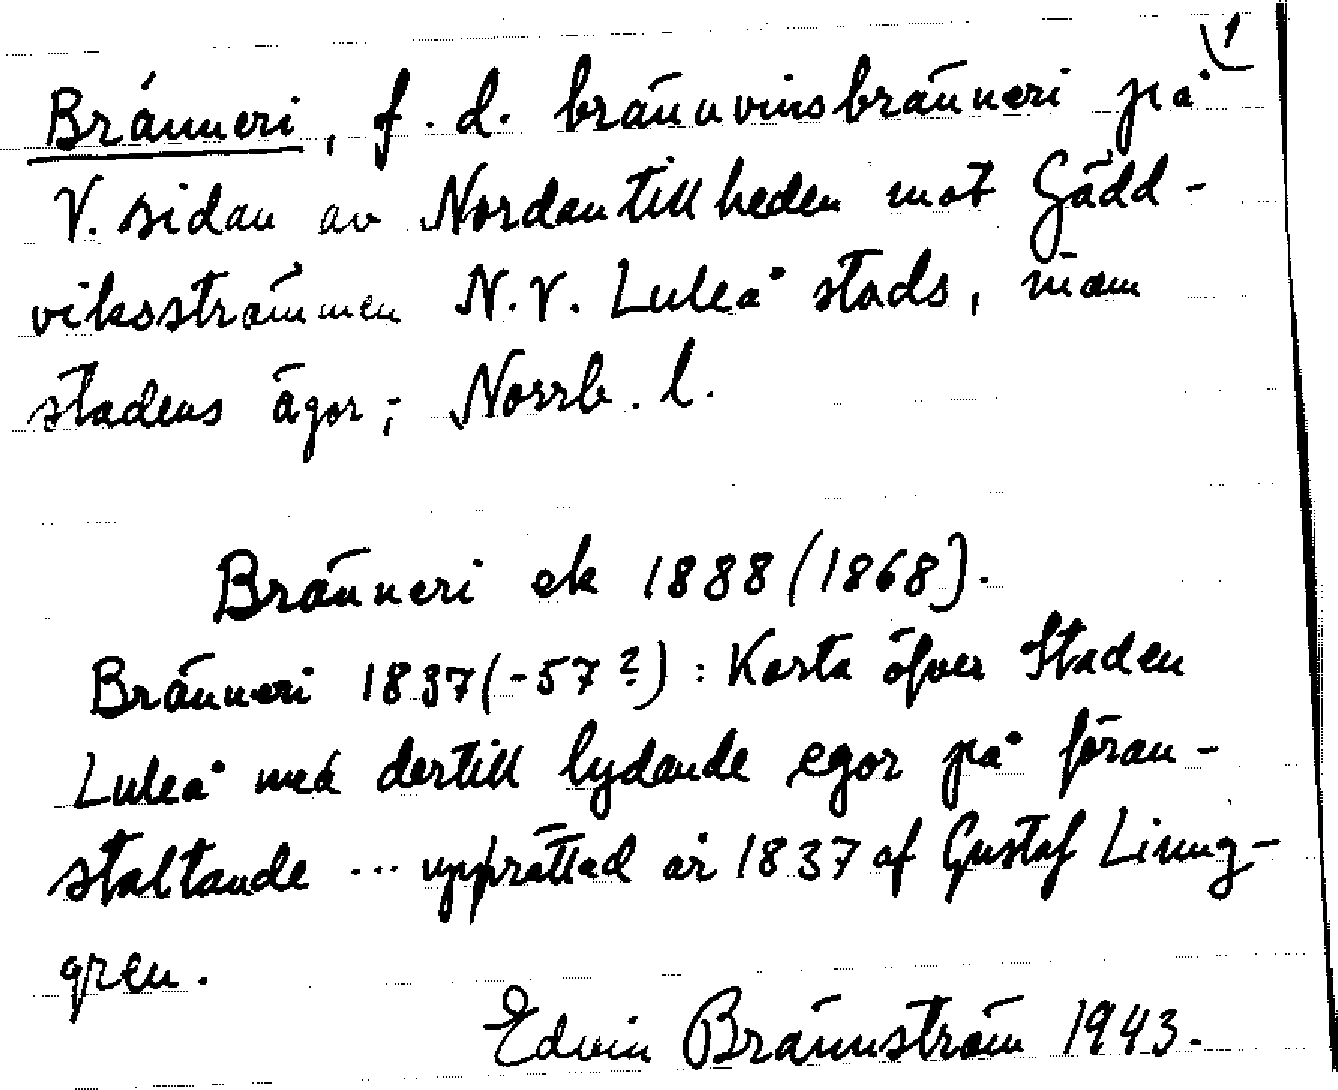 1
Bränneri, f. d. brännvinsbränneri på
V. sidan av Nordantillheden mot Gädd-
viksströmmen N.V. Luleå stads, inom
stadens ägor; Norrb. l.
Bränneri ek 1888 (1868).
Bränneri 1837 (-57?): Karta öfver Staden
Luleå med dertill lydande egor på föran-
staltande ... upprättad år 1837 af Gustaf Ling-
gren.
Edvin Brännström 1943.